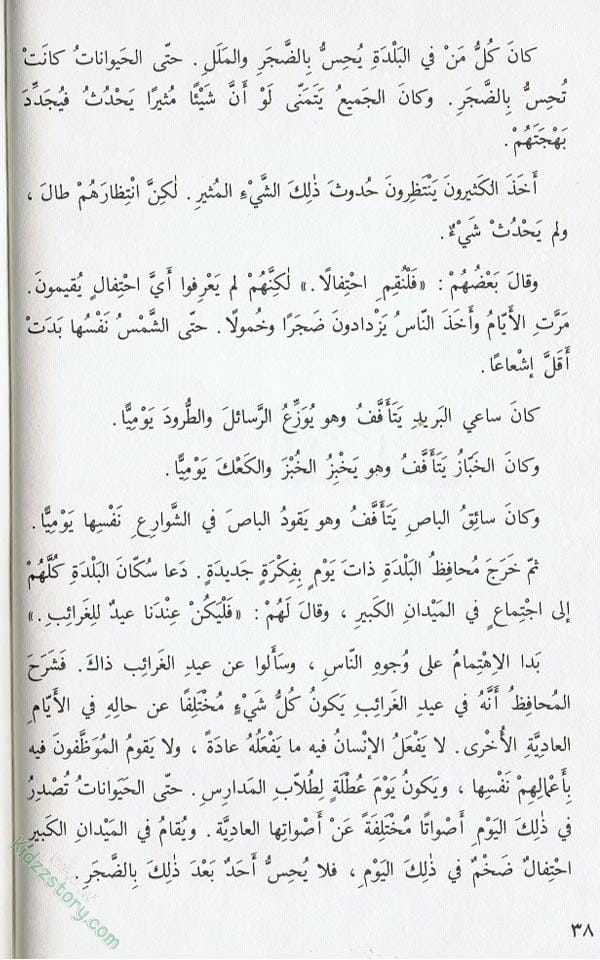 كانَ كُلُّ مَنْ في البَلْدَةِ يُحِسُّ بِالضَّجَرِ والمَلَلِ. حتّى الحَيَواناتُ كانَتْ
تُحِسُّ بِالضَّجَرِ. وكانَ الجَميعُ يَتَمَنّى لَوْ أَنَّ شَيْئًا مُثيرًا يَحْدُثُ فَيُجَدِّدَ
بَهْجَتَهُمْ.
أَخَذَ الكَثيرونَ يَنْتَظِرونَ حُدوثَ ذٰلِكَ الشَّيْءِ المُثيرِ. لٰكِنَّ انْتِظارَهُمْ طالَ ،
ولم يَحْدُثْ شَيْءٌ.
وقالَ بَعْضُهُمْ: «فَلْنُقِمِ احْتِفالًا.» لٰكِنَّهُمْ لم يَعْرِفوا أَيَّ احْتِفالٍ يُقيمونَ.
مَرَّتِ الأَيّامُ وأَخَذَ النّاسُ يَزْدادونَ ضَجَرًا وخُمولًا. حتّى الشَّمْسُ نَفْسُها بَدَتْ
أَقَلَّ إشْعاعًا.
كانَ ساعي البَريدِ يَتَأَفَّفُ وهو يُوَزِّعُ الرَّسائلَ والطُّرودَ يَوْمِيًّا.
وكانَ الخَبّازُ يَتَأَفَّفُ وهو يَخْبِزُ الخُبْزَ والكَعْكَ يَوْمِيًّا.
وكانَ سائِقُ الباصِ يَتَأَفَّفُ وهو يَقودُ الباصَ في الشَّوارِعِ نَفْسِها يَوْمِيًّا.
ثمّ خَرَجَ مُحافِظُ البَلْدَةِ ذاتَ يَوْمٍ بِفِكْرَةٍ جَديدَةٍ. دَعا سُكّانَ البَلْدَةِ كُلَّهُمْ
إلى اجْتِماعٍ في المَيْدانِ الكَبيرِ ، وقالَ لَهُمْ: «فَلْيَكُنْ عِنْدَنا عيدٌ لِلغَرائِبِ.»
بَدا الاِهْتِمامُ على وُجوهِ النّاسِ ، وسَأَلوا عن عيدِ الغَرائب ذاكَ. فَشَرَحَ
المُحافِظُ أَنَّهُ في عيدِ الغَرائِبِ يَكونُ كُلُّ شَيْءٍ مُخْتَلِفًا عن حالِهِ في الأَيّامِ
العادِيَّةِ الأُخْرى. لا يَفْعَلُ الإنْسانُ فيه ما يَفْعَلُهُ عادَةً ، ولا يَقومُ المُوَظَّفونَ فيه
بِأَعْمالِهِمْ نَفْسِها ، ويَكونُ يَوْمَ عُطْلَةٍ لِطُلّابِ المَدارِسِ. حتّى الحَيَواناتُ تُصْدِرُ
في ذٰلِكَ اليَوْمِ أَصْواتًا مُخْتَلِفَةً عَنْ أَصْواتِها العادِيَّة. ويُقامُ في المَيْدانِ الكَبيرِ
احْتِفالٌ ضَخْمٌ في ذٰلِكَ اليَوْمِ ، فلا يُحِسُّ أَحَدٌ بَعْدَ ذٰلِكَ بِالضَّجَرِ.
Kidzzstory.com
٣٨